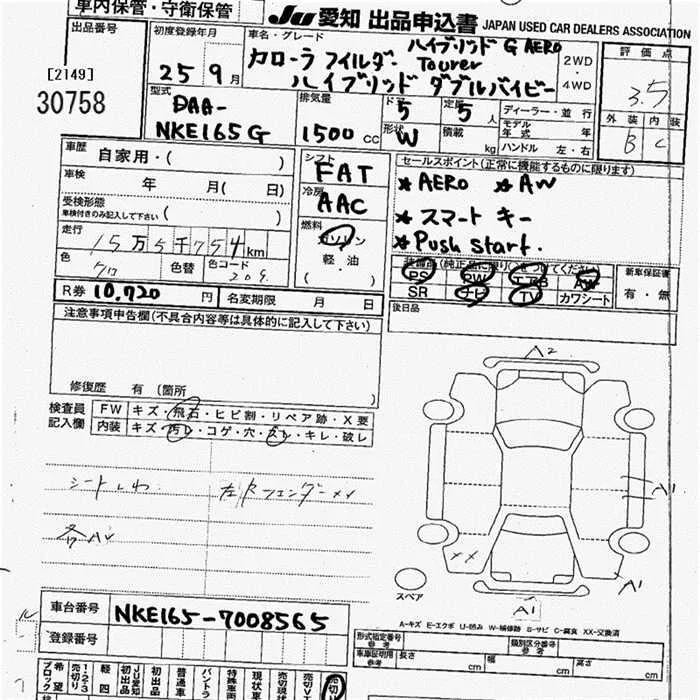 車内保管・守衛保管
Ju 愛知 出品申込書 JAPAN USED CAR DEALERS ASSOCIATION
出品番号
[2149]
30758
初度登録年月
25 9月
車名・グレード
ハイブリッド G AERO
カローラ フィルダー Tourer
ハイブリッド ダブルバイビー
2WD
・
4WD
評価点
3.5
外装 内装
B C
型式
DAA-
NKE165G
排気量
1500 CC
ドア
5
形状
W
定員
5 人
積載
kg
ディーラー・並行
モデル
年式 年
ハンドル 左・右
車歴
自家用・( )
車検
年 月( 日)
受検形態
車検付きのみ記入して下さい ( )
走行
15万5千754km
色
クロ
色替
色コード
209
R券 10,720 円
名変期限 月 日
シフト
FAT
冷房
AAC
燃料
ガソリン
軽・油
( )
セールスポイント(正常に機能するものに限ります)
★AERO ★AW
★スマートキー
★Push start.
装備品(純正品に限り○をつけてください)
PS PW AW
SR ナビ TV カワシート
新車保証書
有・無
後日品
注意事項申告欄(不具合内容等は具体的に記入して下さい)
修復歴 有 (箇所 )
検査員
記入欄
FW キズ・飛石・ヒビ割・リペア跡・X要
内装 キズ・汚レ・コゲ・穴・スレ・キレ・破レ
シートしわ
左Rフェンダーxx
各AV
A2
A1
XX
A1
A1
スペア
A-キズ E-エクボ U-凹み W-補修跡 S-サビ C-腐食 XX-交換済
車台番号 NKE165-7008565
登録番号
形式指定番号
参考
類別区分番号
参考
車庫証明用
参考
長さ cm
幅 cm
高さ cm
希望
ブロック
1・2・3
売切り
軽四
JU愛知
初出品
初出品
普通車
バントラ
特殊車両
現状車
売切現状
売切り